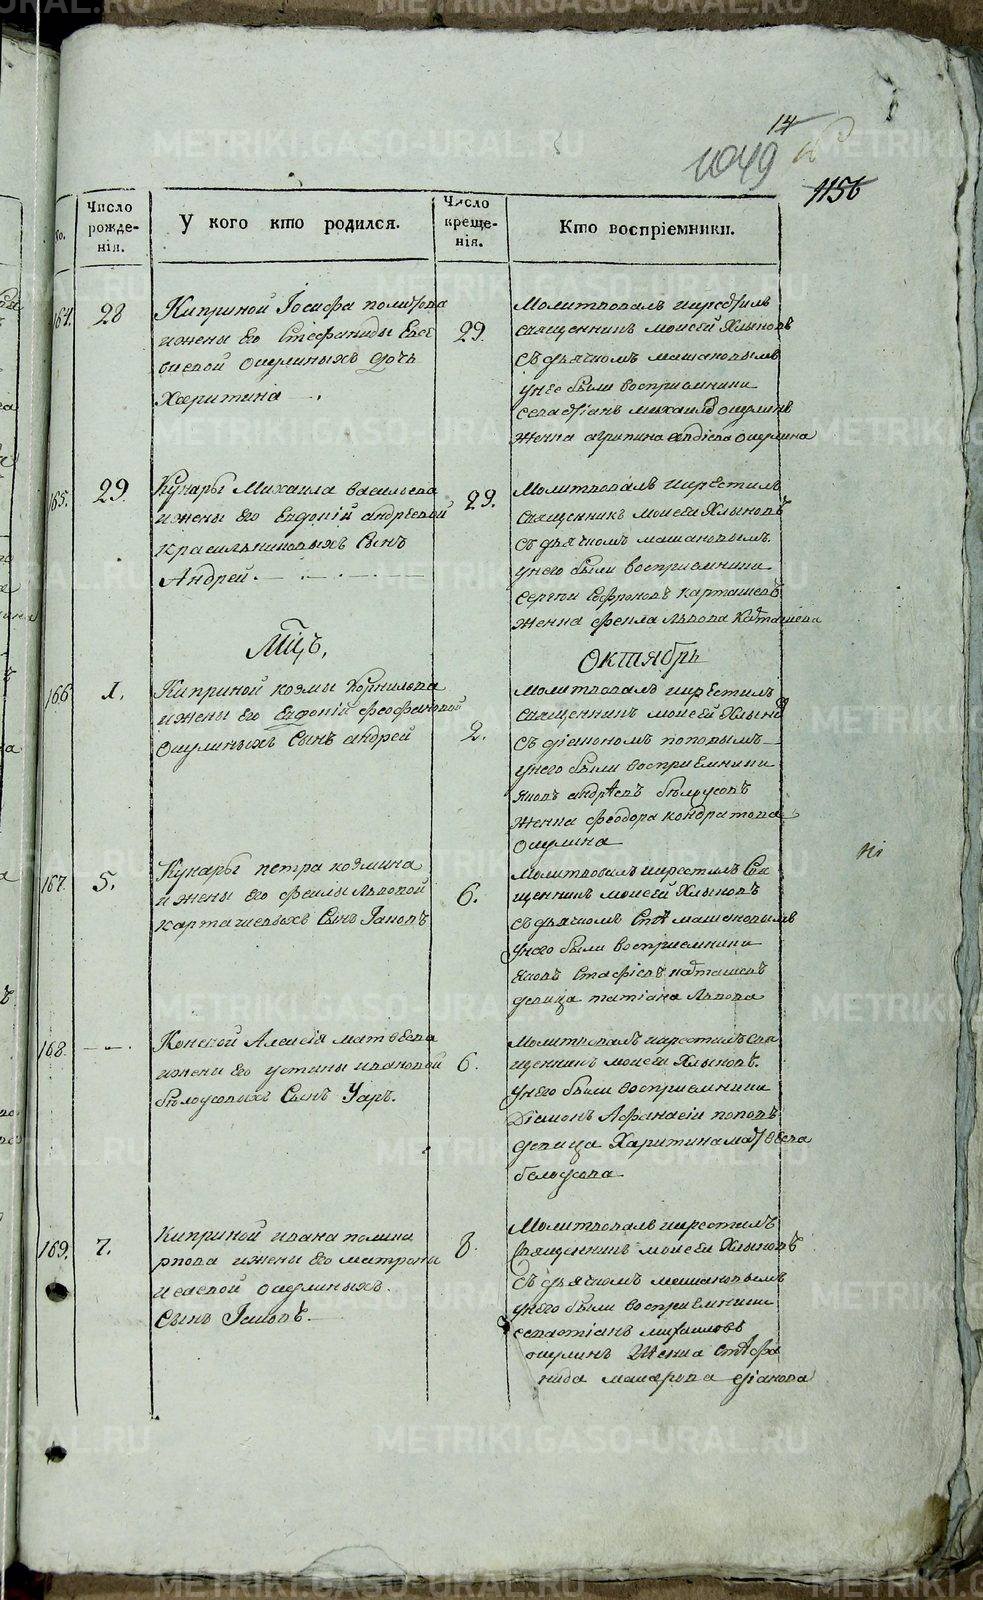 METRIKI.GASO-URAL.RU
14
1049
1156
Число рожде-нія.
У кого кто родился.
Число креще-нія.
Кто воспріемники.
164.
28
Киприной Іосифа
и жены его Стефаниды
Ошулиныхъ дочь
Харитина
29.
Молитвовалъ и крестилъ
священникъ Моисей Хлыновъ
съ дьячкомъ Машановымъ
у нее были восприемники
Севастіанъ Михаилов Ошулинъ
женка Агрипина Ошулина
165.
29
Кунары Михаила Васильева
и жены его Евдокіи Андреевой
Красильниковыхъ сынъ
Андрей.
29.
Молитвовалъ и крестилъ
священникъ Моисей Хлыновъ
съ дьячкомъ Машановымъ.
у него были восприемники
Сергей Софроновъ Карташевъ
женка Фекла Львова Карташева
Мцъ,
Октябрь
166
1.
Киприной Козмы Корнилова
и жены его Евдокіи Феофановой
Ошулиныхъ сынъ Андрей
2.
Молитвовалъ и крестилъ
священникъ Моисей Хлынов
съ діакономъ Поповымъ
у него были восприемники
Яковъ Андреевъ Белоусовъ
женка Феодора Кондратова
Ошулина
167.
5.
Кунары Петра Козмина
и жены его Феклы Львовой
Карташевыхъ сынъ Іаковъ
6.
Молитвовалъ и крестилъ свя
щенникъ Моисей Хлыновъ
съ дьячкомъ Машановымъ
у него были восприемники
Яковъ Карташевъ
девица Татіана Львова
168.
Конской Алексія Матвеева
и жены его Устины Ивановой
Бѣлоусовыхъ сынъ Уаръ.
6.
Молитвовалъ и крестилъ свя
щенникъ Моисей Хлыновъ.
у него были восприемники
Діаконъ Афанасіи Поповъ
девица Харитина Матвеева
Белоусова
169.
7.
Киприной Ивана Полика
рпова и жены его Матроны
Исаевой Ошулиныхъ.
сынъ Іаковъ.
8.
Молитвовалъ и крестилъ
священникъ Моисей Хлыновъ
съ дьячкомъ Машановымъ
у него были восприемники
Севастіанъ Михаиловъ
Ошулинъ женка Стефа
нида Макарова